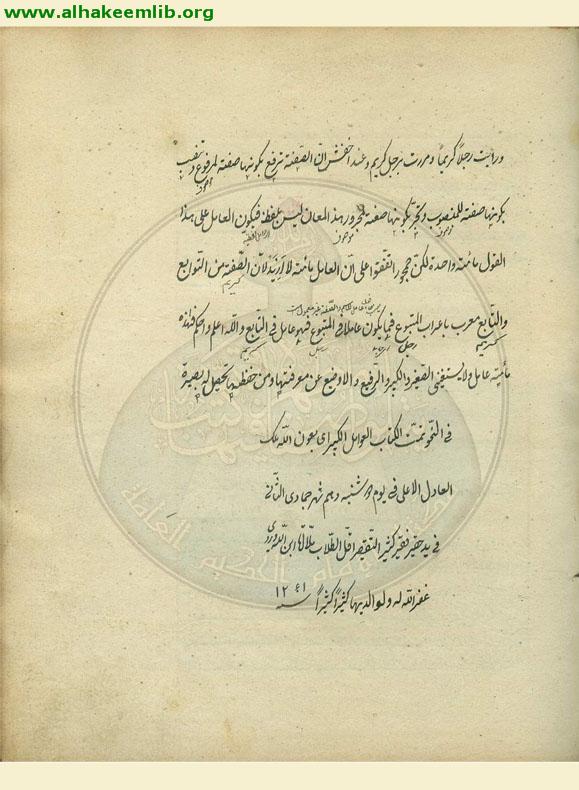 www.alhakeemlib.org
ورايت رجلاً كريماً ومررت برجل كريم وعند اخفش انّ الصّفة ترفع بكونها صفة لمرفوع وتنصب
بكونها صفة للمنصوب وتجرّ بكونها صفة للمجرور وهذ المعان ليس بلفظ فيكون العامل على هذا
القول مائة واحدة لكن جمهور اتّفقوا على انّ العامل مائة لا ازيد لانّ الصّفة من التوابع
كريم
والتّابع معرب باعراب المتبوع فما يكون عاملا فى المتبوع فهو عامل فى التابع واللّه اعلم واحكم فهذه
كريم رجل كريم
مائة عامل ولا يستغنى الصّغير والكبير والرّفيع والاوضيع عن معرفتها ومن حفظها تحصل له بصيرة
فى النّحو تمّت الكتاب العوامل الكبيراى بعون اللّه ملك
العادل الاعلى فى يوم شنبه دهم شهر جمادى الثّانى
فى يد حقير فقير كثير التّقصير اقلّ الطّلاب ابن
غفر اللّه له ولوالديها كثيراً كثيراً سنه ١٢٤١